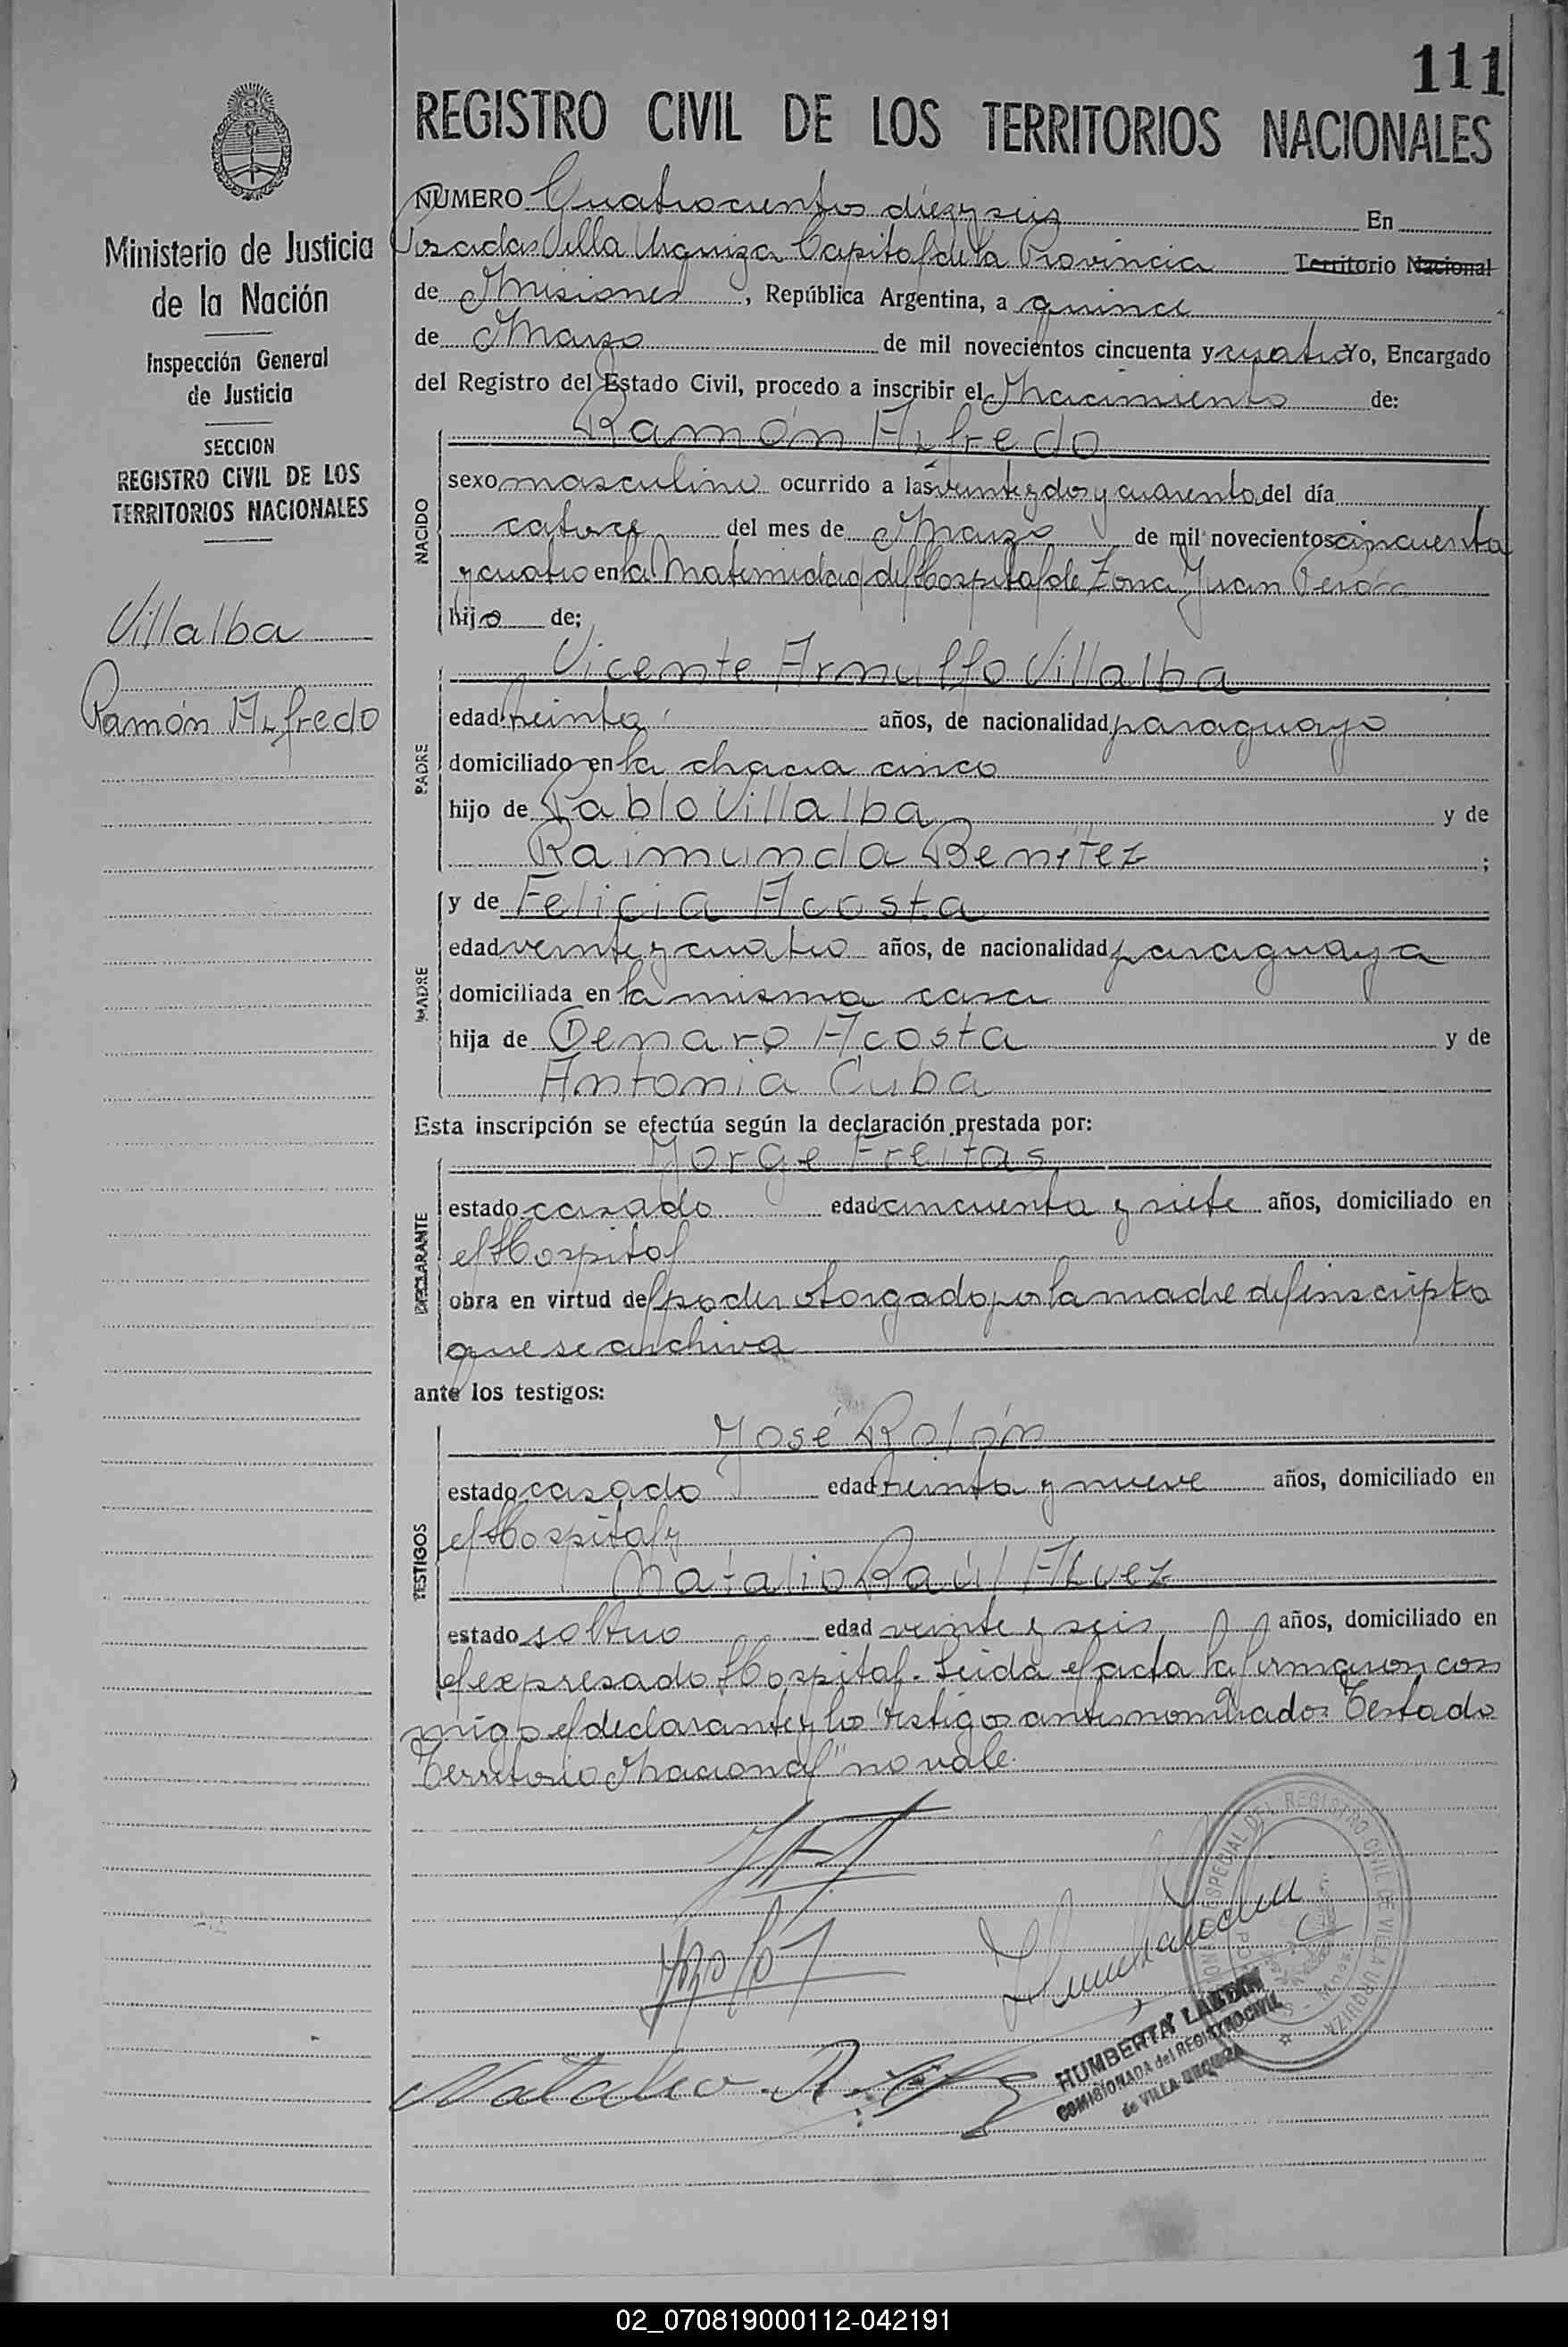 111
REGISTRO CIVIL DE LOS TERRITORIOS NACIONALES
Ministerio de Justicia
de la Nación
Inspección General
de Justicia
SECCION
REGISTRO CIVIL DE LOS
TERRITORIOS NACIONALES
Villalba
Ramón Alfredo
NUMERO Cuatrocientos diez y seis En
Posadas Villa Urquiza Capital de la Provincia Territorio Nacional
de Misiones, República Argentina, a quince
de Marzo de mil novecientos cincuenta y cuatro Yo, Encargado
del Registro del Estado Civil, procedo a inscribir el Nacimiento de:
Ramón Alfredo
NACIDO
sexo masculino ocurrido a las veinte y dos y cuarenta del día
catorce del mes de Marzo de mil novecientos cincuenta
y cuatro en la Maternidad del Hospital de Zona Juan Perón
hijo de:
Vicente Arnulfo Villalba
PADRE
edad treinta años, de nacionalidad paraguayo
domiciliado en la chacra cinco
hijo de Pablo Villalba y de
Raimunda Benítez ;
y de Felicia Acosta
MADRE
edad veinte y cuatro años, de nacionalidad paraguaya
domiciliada en la misma casa
hija de Genaro Acosta y de
Antonia Cuba
Esta inscripción se efectúa según la declaración prestada por:
Jorge Freitas
DECLARANTE
estado casado edad cincuenta y siete años, domiciliado en
el Hospital
obra en virtud del poder otorgado por la madre del inscripto
que se archiva
ante los testigos:
José Rolón
TESTIGOS
estado casado edad treinta y nueve años, domiciliado en
el Hospital y
Natalio Raúl Alvez
estado soltero edad veinte y seis años, domiciliado en
el expresado Hospital. Leida el acta la firmaron con
migo el declarante y los testigos antes nombrados. Testado
"Territorio Nacional" no vale.
Natalio R.
SPECIAL DEL REGISTRO CIVIL DE VILLA URQUIZA
HUMBERTA
COMISIONADA del REGISTRO CIVIL
de VILLA URQUIZA
02_070819000112-042191